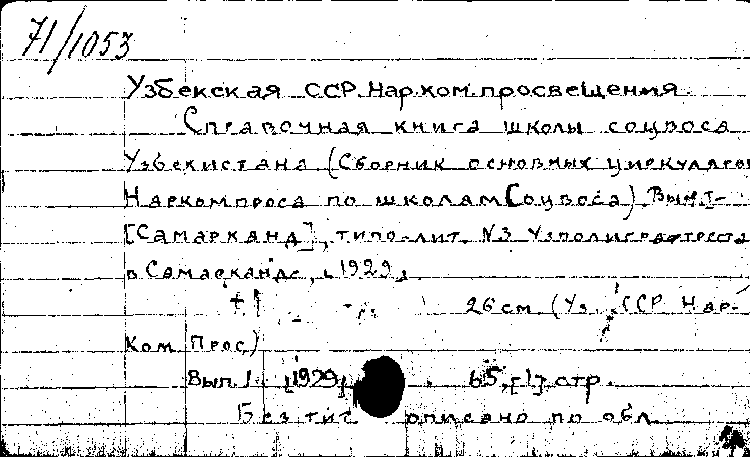 71/1053
Узбекская ССР. Нар.ком.просвещения.
Справочная книга школы соцвоса
Узбекистана (Сборник основных циркуляров
Наркомпроса по школам Соцвоса). Вып. I-
[Самарканд], типо-лит. №3 Узполиграфтреста
в Самарканде, [1929].
26 см. (Уз. ССР Нар-
Ком. Прос.)
Вып. 1. [1929]. 65, [1] стр.
Без тит описано по обл.